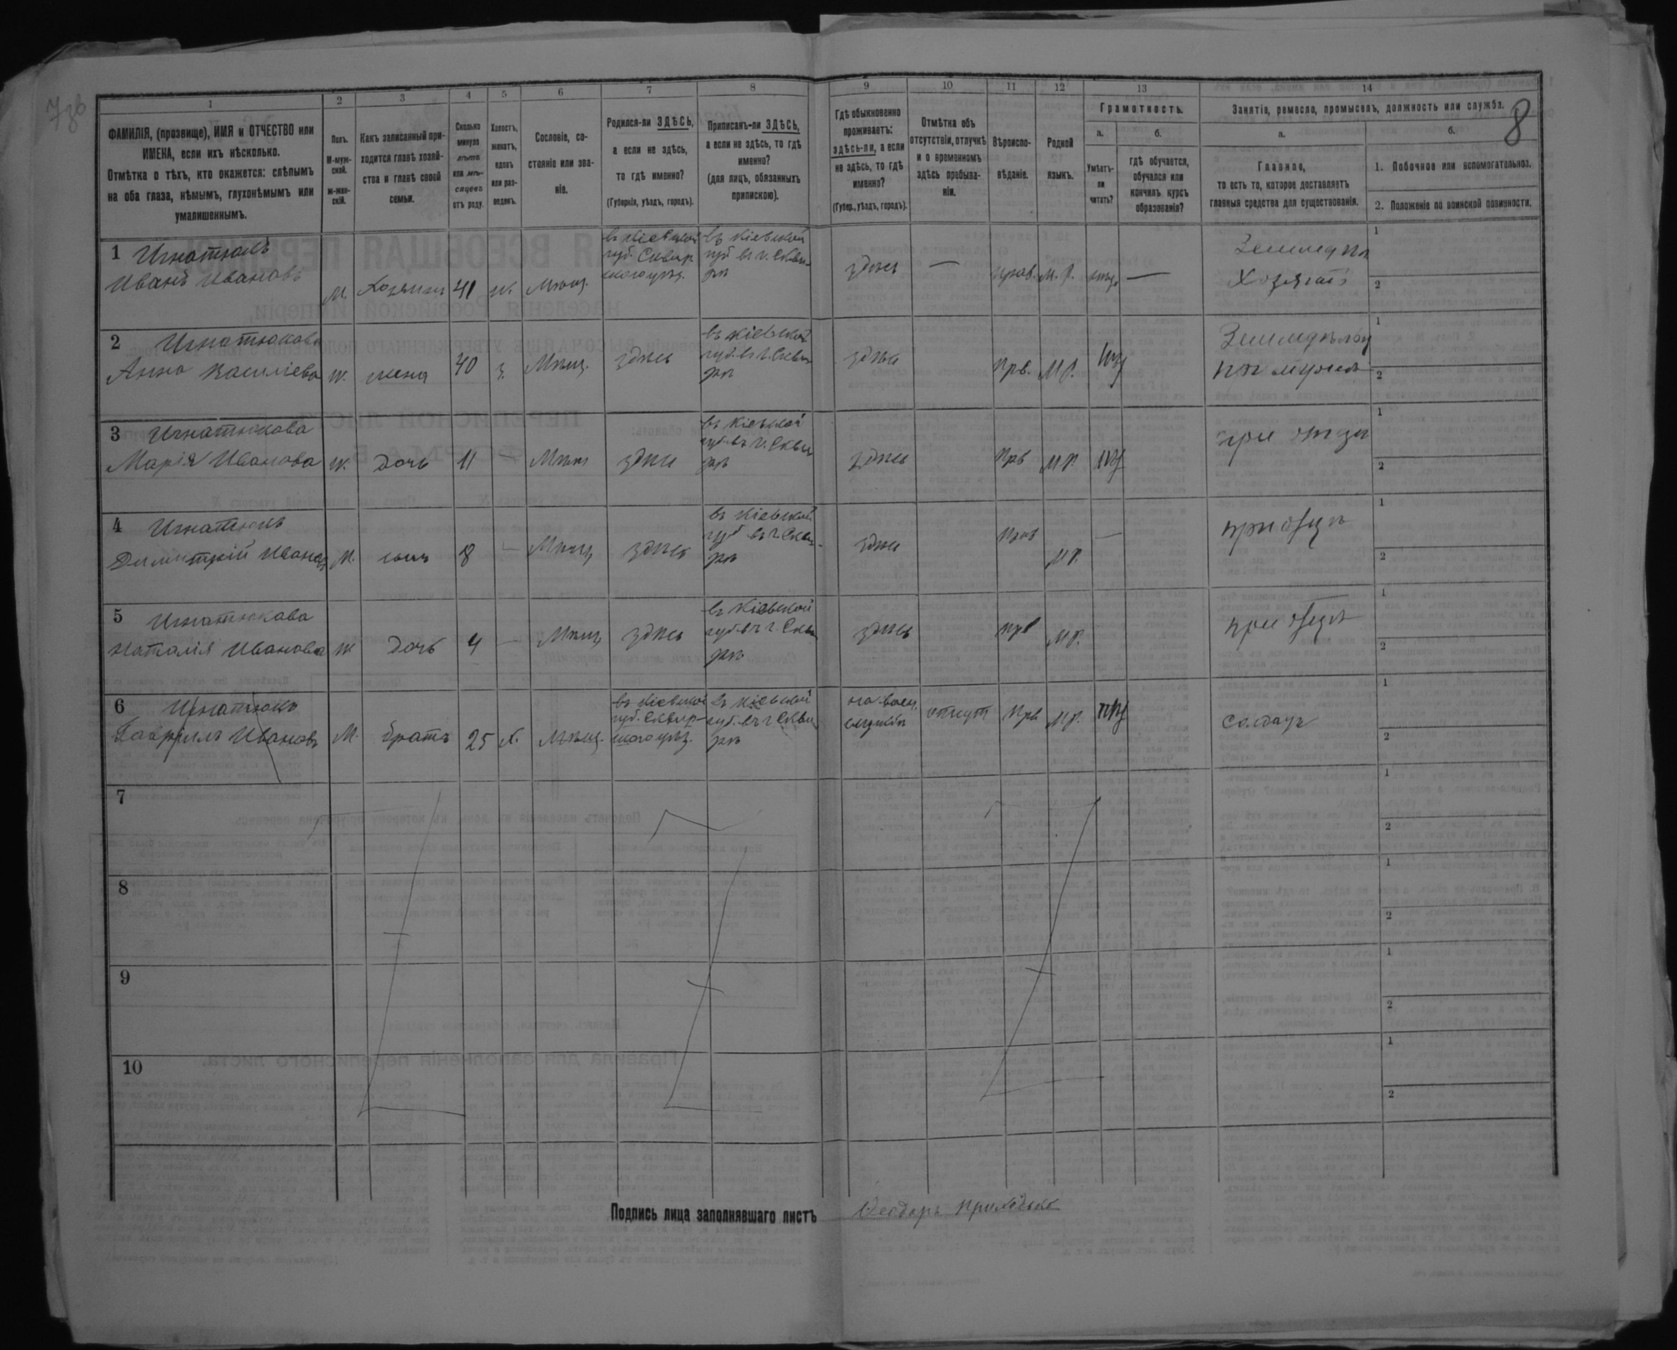 7зв
8
1
2
3
4
5
6
7
8
9
10
11
12
13
14
ФАМИЛІЯ, (прозвище), ИМЯ и ОТЧЕСТВО или
ИМЕНА, если ихъ нѣсколько.
Отмѣтка о тѣхъ, кто окажется: слѣпымъ
на оба глаза, нѣмымъ, глухонѣмымъ или
умалишеннымъ.
Полъ.
М-муж-
ской.
ж-жен-
скій.
Какъ записанный при-
ходится главѣ хозяй-
ства и главѣ своей
семьи.
Сколько
минуло
лѣтъ
или мѣ-
сяцевъ
отъ роду.
Холостъ,
женатъ,
вдовъ
или раз-
веденъ.
Сословіе, со-
стояніе или зва-
ніе.
Родился-ли ЗДѢСЬ,
а если не здѣсь,
то гдѣ именно?
(Губернія, уѣздъ, городъ).
Приписанъ-ли ЗДѢСЬ,
а если не здѣсь, то гдѣ
именно?
(для лицъ, обязанныхъ
припискою).
Гдѣ обыкновенно
проживаетъ:
здѣсь-ли, а если
не здѣсь, то гдѣ
именно?
(Губер., уѣздъ, городъ).
Отмѣтка объ
отсутствіи, отлучкѣ
и о временномъ
здѣсь пребыва-
ніи.
Вѣроиспо-
вѣданіе.
Родной
языкъ.
Грамотность.
а.
Умѣетъ-
ли
читать?
б.
гдѣ обучается,
обучался или
кончилъ курсъ
образованія?
Занятіе, ремесло, промыселъ, должность или служба.
а.
Главное,
то есть то, которое доставляетъ
главныя средства для существованія.
б.
1. Побочное или вспомогательное.
2. Положеніе по воинской повинности.
1 Игнатюкъ
Иванъ Ивановъ
М. Хозяинъ 41 ж. Мѣщ.
въ Кіевской
губ. Сквир
скаго уѣз.
въ Кіевской
губ въ г. Сквы-
рѣ
здѣсь — Прав. М. Р. —
Землед
Хозяинъ
1
2
2 Игнатюкова
Анна Василіева
ж. жена 40 з. Мѣщ. здѣсь
въ Кіевской
губ. въ г. Сквы
рѣ
здѣсь Прв. М Р.
Земледѣлец
при мужѣ
1
2
3 Игнатюкова
Марія Иванова
ж. дочь 11 Мѣщ здѣсь
въ Кіевской
губ въ г. Сквы
рѣ
здѣсь Прв М Р
при отцѣ
1
2
4 Игнатюкъ
Димитрій Иванов
М. сынъ 8 — Мѣщ здѣсь
въ Кіевской
губ въ г Сквы-
рѣ
здѣсь Прв М Р. —
при отцѣ
1
2
5 Игнатюкова
Наталія Иванова
ж дочь 4 — Мѣщ здѣсь
въ Кіевской
губ въ г Сквы
рѣ
здѣсь Прв М Р.
при отцѣ
1
2
6 Игнатюкъ
Гаврилъ Ивановъ
М. братъ 25 х. Мѣщ.
въ Кіевской
губ. Сквир-
скаго уѣз.
въ Кіевской
губ. въ г Сквы
рѣ
на воен.
службѣ
отсут Прв М Р.
солдатъ
1
2
7
1
2
8
1
2
9
1
2
10
1
2
Подпись лица заполнявшаго листъ Ѳеодоръ Приходько